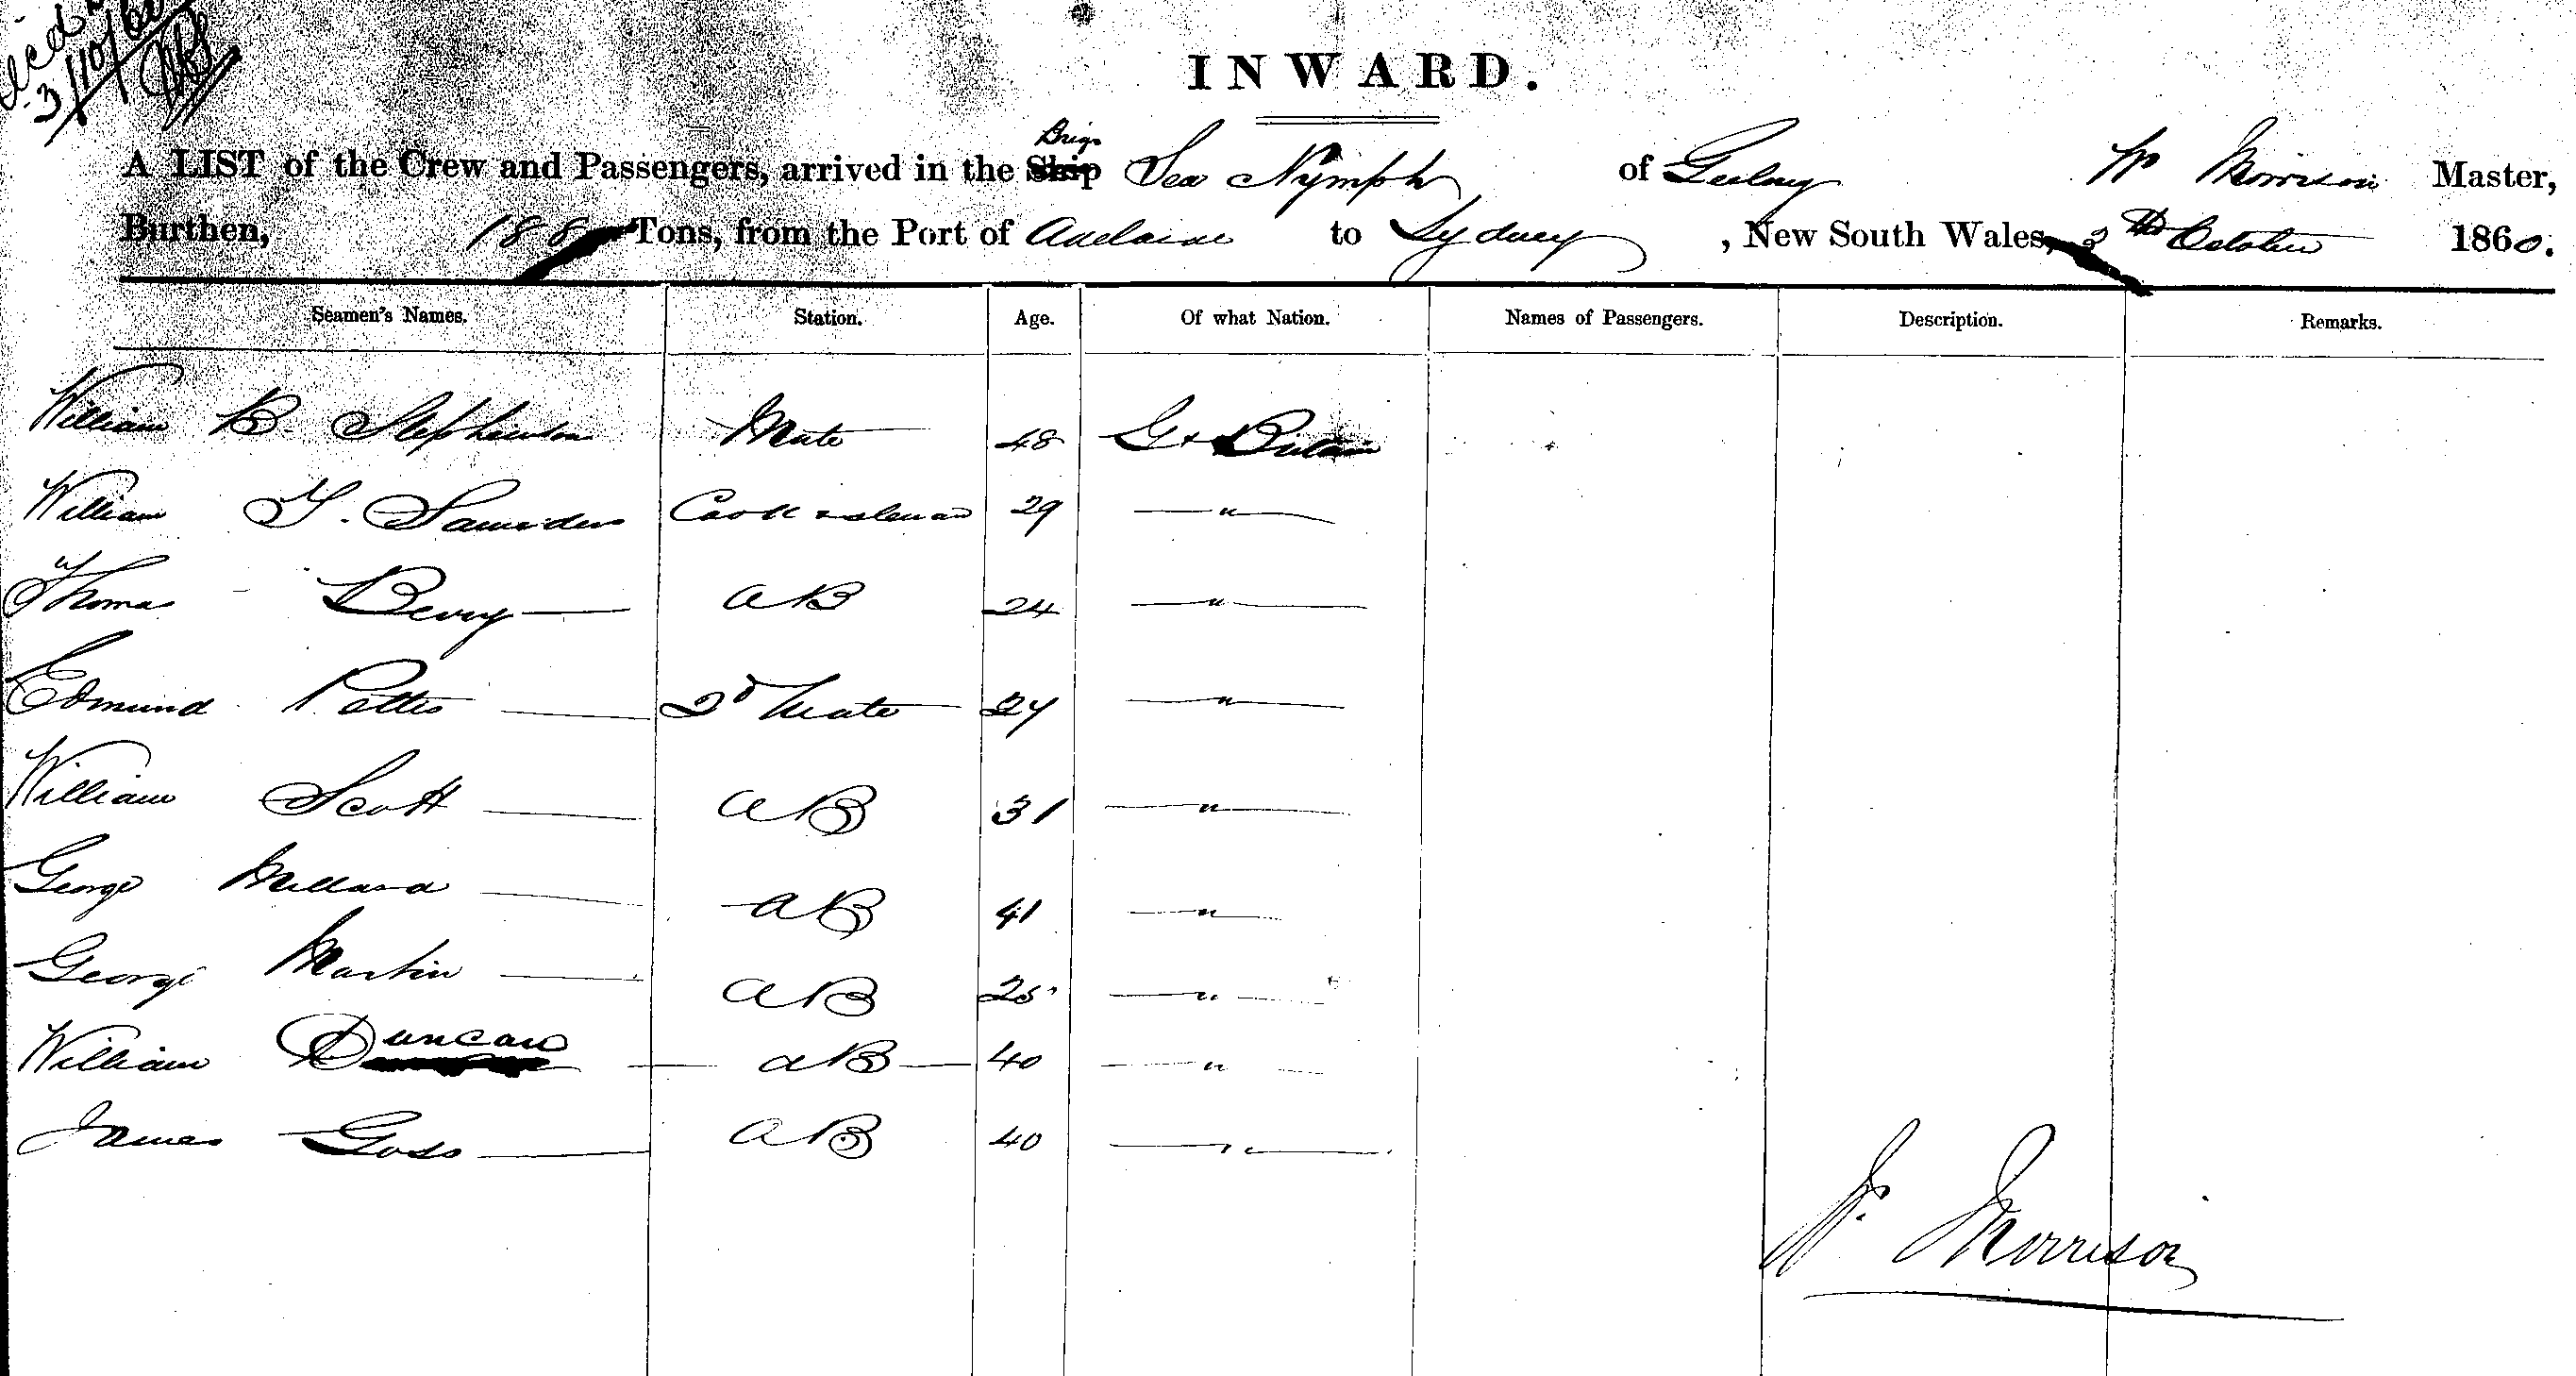 3/10/60
INWARD.
Brig
A LIST of the Crew and Passengers, arrived in the Ship Sea Nymph of Geelong W Morrison Master,
Burthen, 188 Tons, from the Port of Adelaide to Sydney, New South Wales, October 1860.
Seamen's Names. Station. Age. Of what Nation. Names of Passengers. Description. Remarks.
William B. Stephenson Mate 48 Gt Britain
William T. Saunders Cook & Steward 29 — " —
Thomas Berry AB 24 — " —
Edmund 2d Mate 27 — " —
William Scott AB 31 — " —
George AB 41 — " —
George Martin AB 25 — " —
William Duncan AB 40 — " —
James Goss AB 40 — " —
W. Morrison